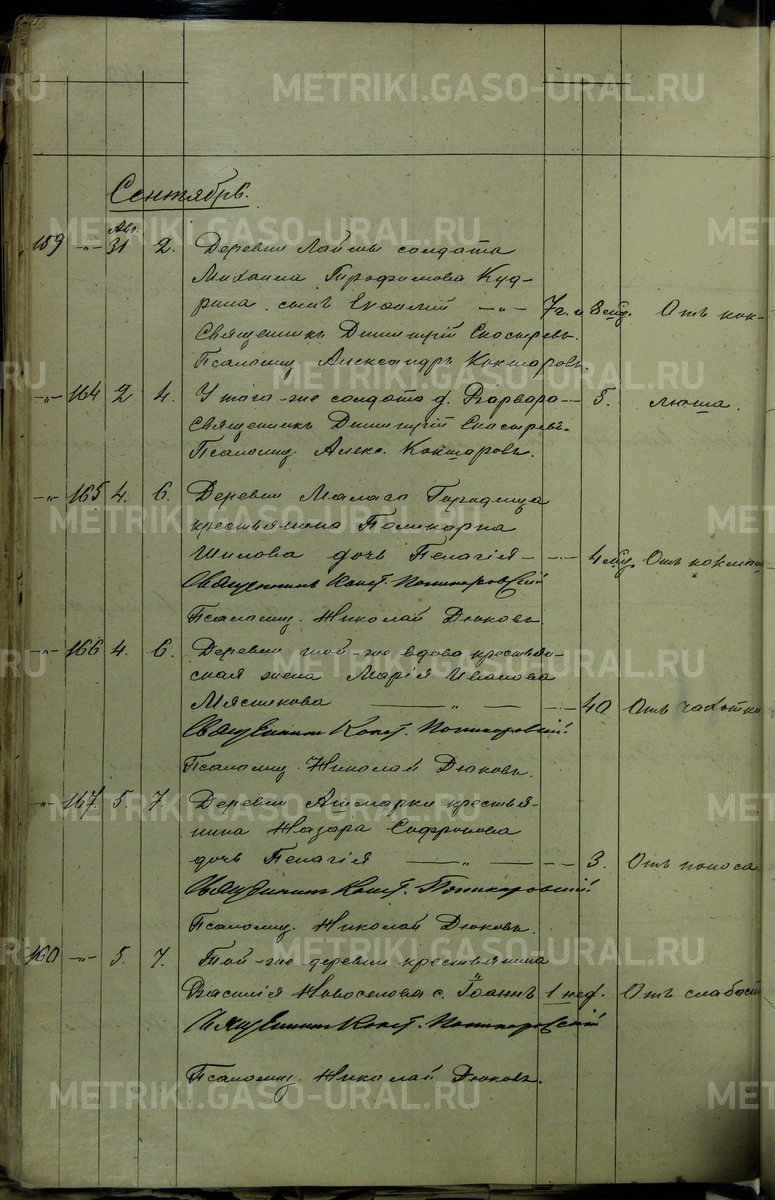 Сентябрь.
159 -"- Авг. 31 2. Деревни Лаймы солдата
Михаила Трофимова Куд-
рина сынъ Евфимій -"- 7 г. и 8 мц. Отъ кок-
Священникъ Димитрій Скосыревъ.
Псаломщ. Александръ Кокшаровъ.
-"- 164 2 4. У того-же солдата д. Варвара - - 5. люша.
Священникъ Димитрій Скосыревъ.
Псаломщ. Алекс. Кокшаровъ.
-"- 165 4. 6. Деревни Малаго Городища
крестьянина Поликарпа
Шилова дочь Пелагія - - - 4 мц. Отъ коклюш
Священникъ Конст.
Псаломщ. Николай Дюковъ.
-"- 166 4. 6. Деревни той-же вдова крестьян-
ская жена Марія Иванова
Мясникова — " — - - 40 Отъ чахотки
Священникъ Конст.
Псаломщ. Николай Дюковъ.
-"- 167 5. 7. Деревни Ашмарки крестья-
нина Назара Софронова
дочь Пелагія — " — - - 3. Отъ поноса
Священникъ Конст.
Псаломщ. Николай Дюковъ.
160 -"- 5. 7. Той-же деревни крестьянина
Василія Новоселова с. Іоаннъ 1 нед. Отъ слабост
Священникъ Конст.
Псаломщ. Николай Дюковъ.
METRIKI.GASO-URAL.RU